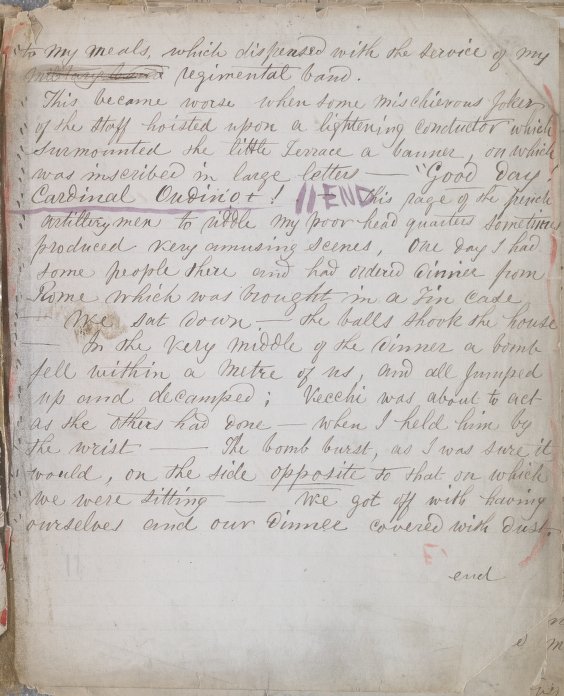 to my meals, which dispensed with the service of my
regimental band.
This became worse when some mischievous Joker
of the Staff hoisted upon a lightening conductor which
surmounted the little Terrace a banner, on which
was inscribed in large letters — "Good day
Cardinal Oudinot! //END This rage of the french
artillerymen to riddle my poor head quarters sometimes
produced very amusing scenes, One day I had
some people there and had ordered dinner from
Rome which was brought in a Tin case
We sat down — the balls shook the house
— In the very middle of the dinner a bomb
fell within a metre of us, and all jumped
up and decamped; Vecchi was about to act
as the others had done — when I held him by
the wrist — The bomb burst, as I was sure it
would, on the side opposite to that on which
we were sitting — We got off with having
ourselves and our dinner covered with dust.
end